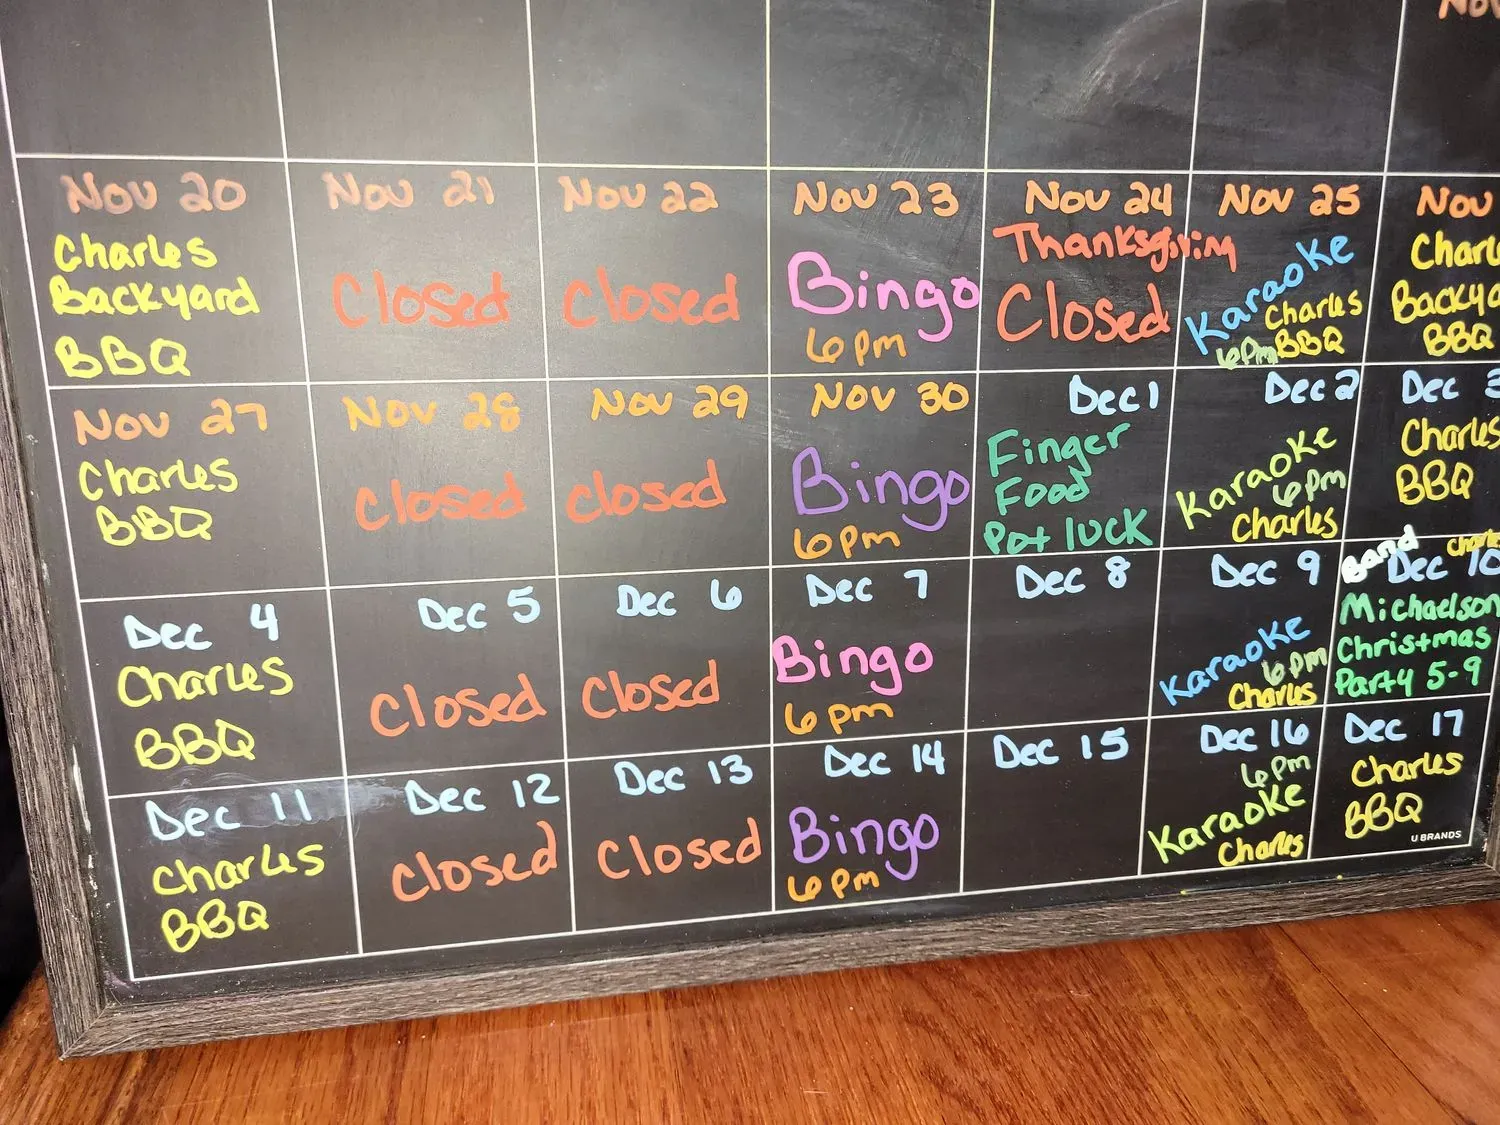 Nov
Nov 20
Charles
Backyard
BBQ
Nov 21
Closed
Nov 22
Closed
Nov 23
Bingo
6pm
Nov 24
Thanksgiving
Closed
Nov 25
Karaoke
6pm
Charles
BBQ
Nov
Charl
Backya
BBQ
Nov 27
Charles
BBQ
Nov 28
Closed
Nov 29
Closed
Nov 30
Bingo
6pm
Dec 1
Finger
Food
Pot luck
Dec 2
Karaoke
6pm
Charles
Dec 3
Charles
BBQ
Dec 4
Charles
BBQ
Dec 5
Closed
Dec 6
Closed
Dec 7
Bingo
6pm
Dec 8
Dec 9
Karaoke
6pm
Charles
Band
Charles
Dec 10
Michaelson
Christmas
Party 5-9
Dec 11
Charles
BBQ
Dec 12
Closed
Dec 13
Closed
Dec 14
Bingo
6pm
Dec 15
Dec 16
6pm
Karaoke
Charles
Dec 17
Charles
BBQ
U BRANDS